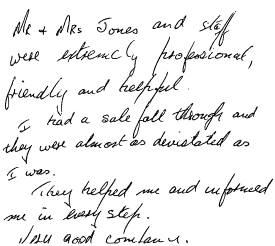 Mr + Mrs Jones and staff
were extremely professional,
friendly and helpful.
I had a sale fall through and
they were almost as devistated as
I was.
They helped me and informed
me in every step.
Very good company.